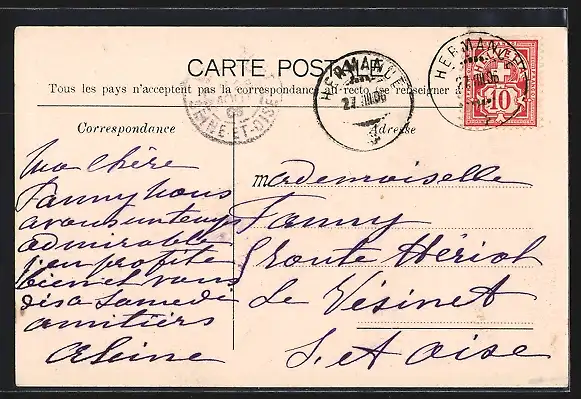 CARTE POSTALE
Tous les pays n'acceptent pas la correspondance au recto (se renseigner
HERMANCE
27.III.06
HERMANCE
27.III.06
10
SEINE-ET-OISE
Correspondance
Adresse
Ma chère
Fanny nous
avons un temps
admirable
j'en profite
bien et vous
dis a Samedi
amitiés
Aleine
Mademoiselle
Fanny
5 route Hériot
Le Vésinet
S. et Oise